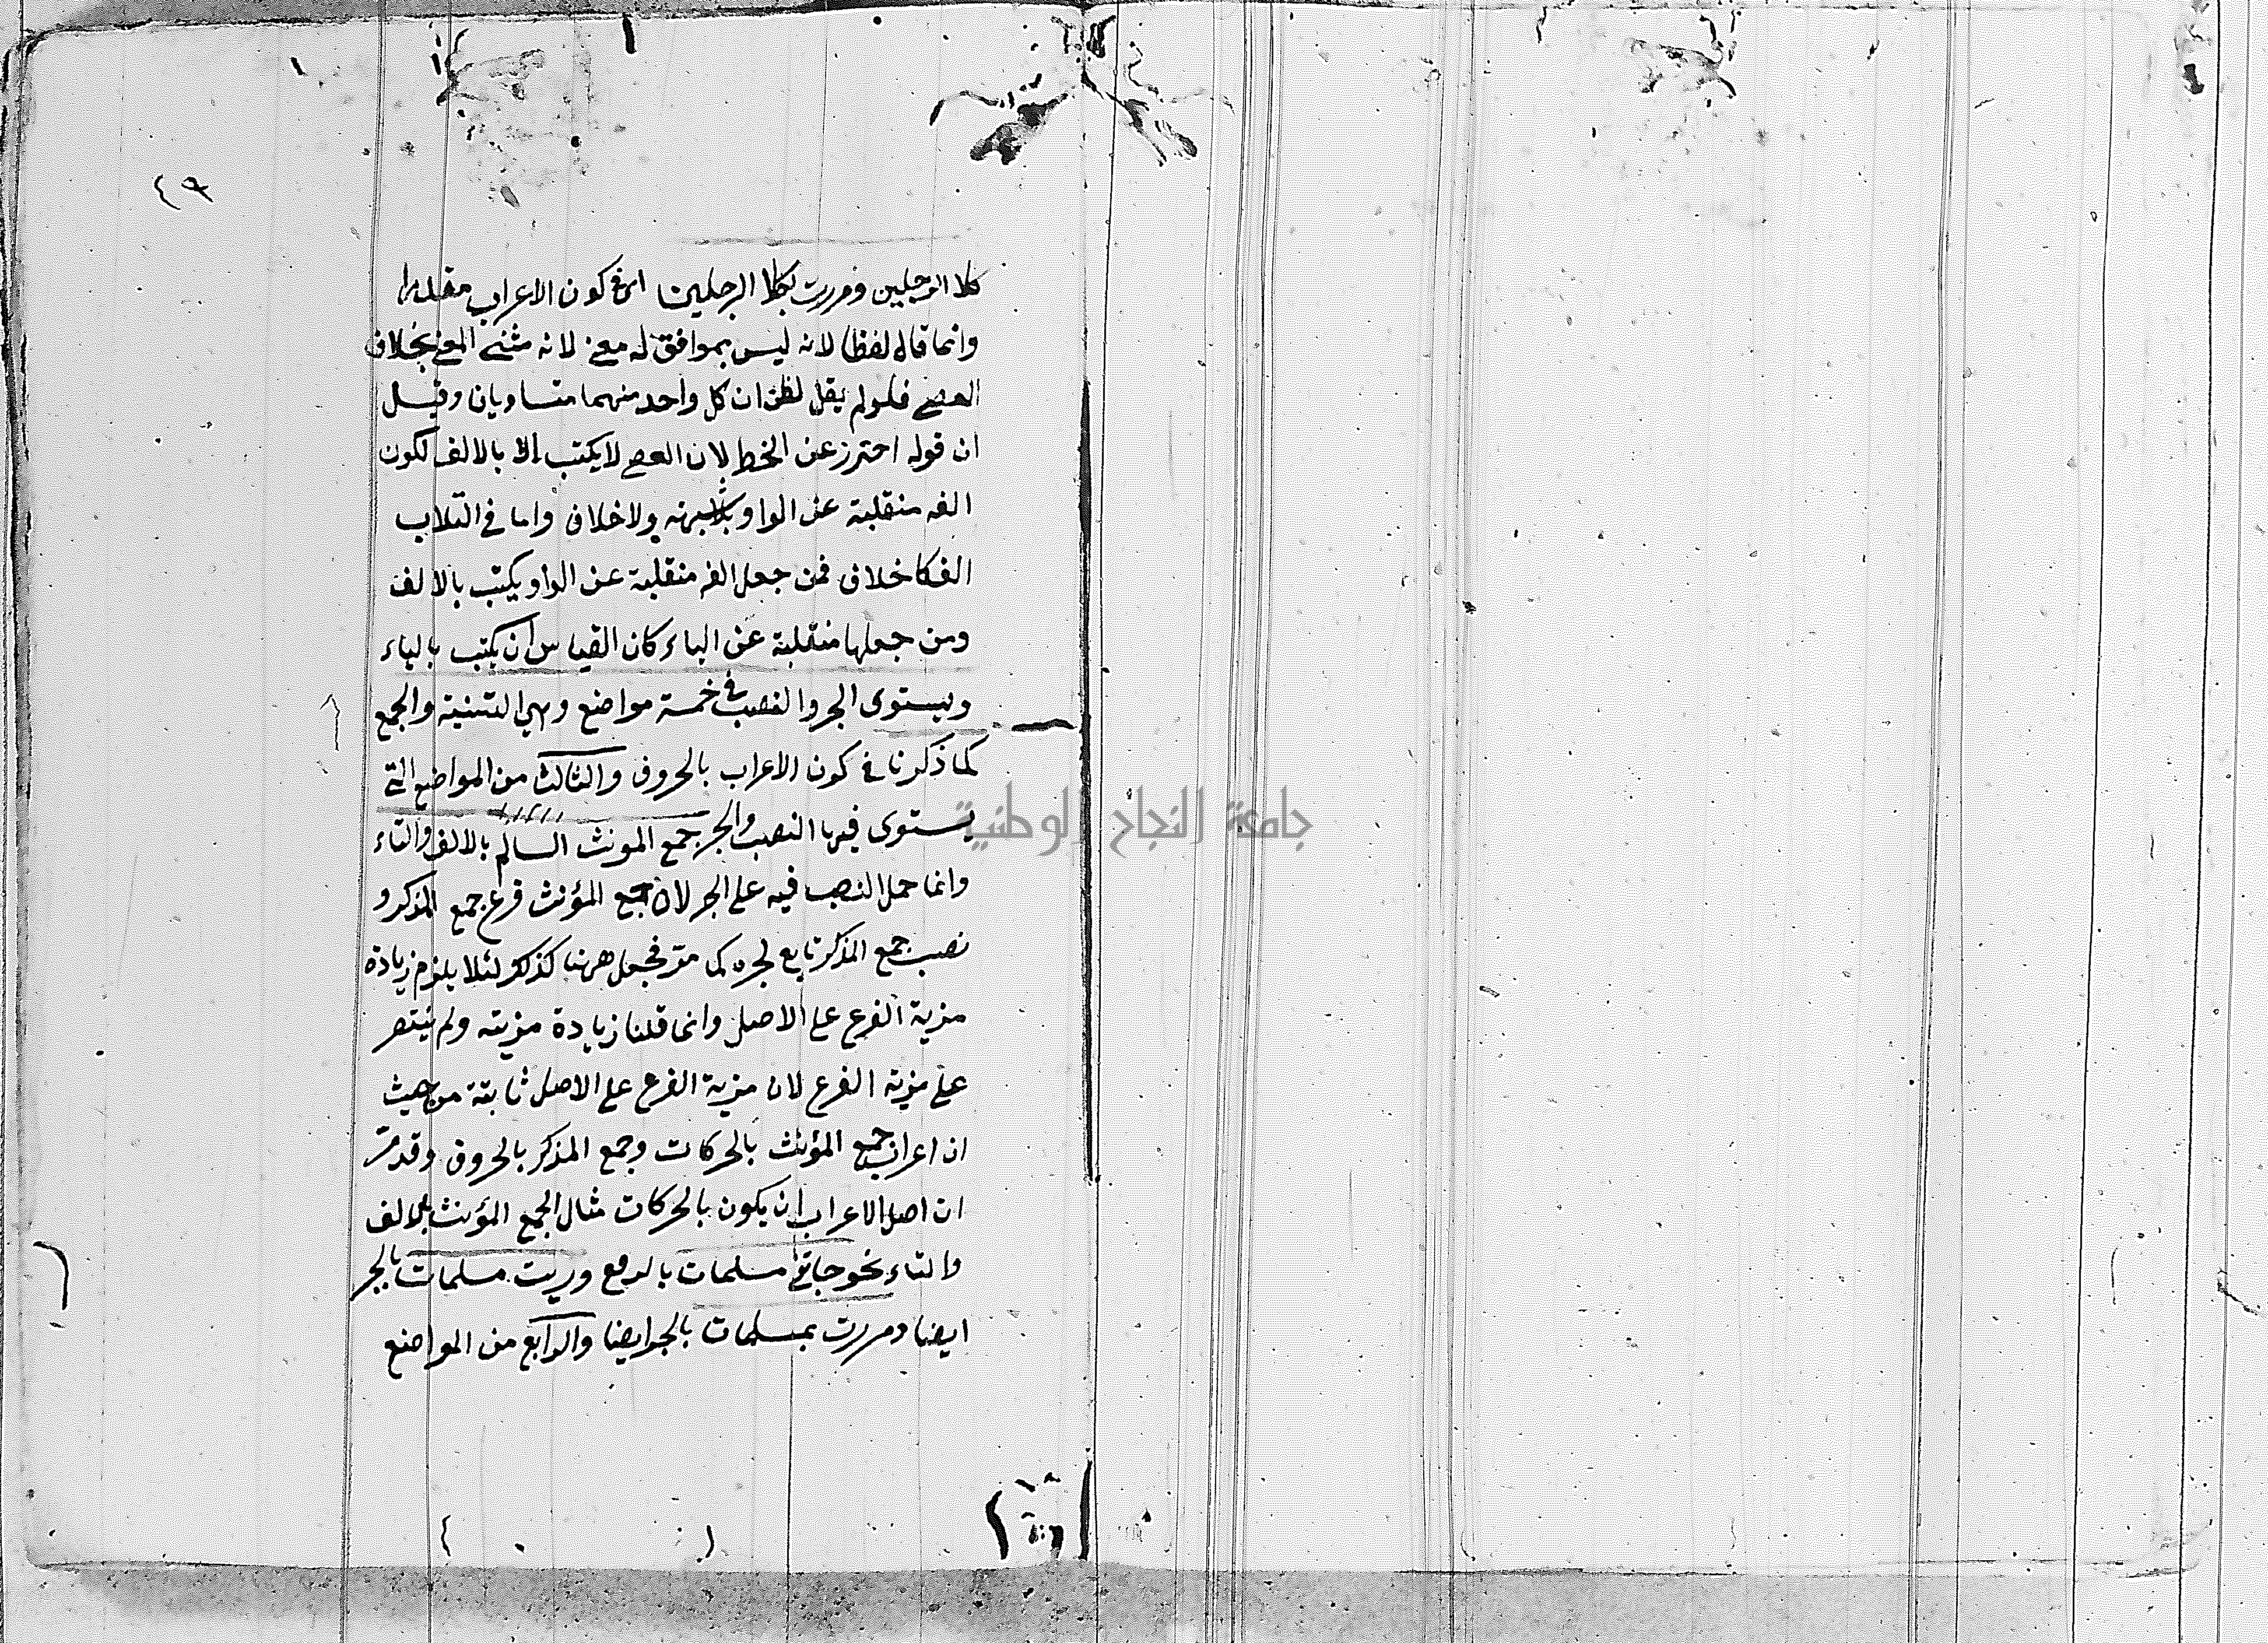 ٤٩
كلا الرجلين ومررت بكلا الرجلين اى فى كون الاعراب مقدرا
وانما قال لفظا لانه ليس بموافق له معنى لانه مثنى المعنى بخلاف
العصى فلولم يقل لظن ان كل واحد منهما متساويان وقيل
ان قوله احترز عن الخط لان العصى لا يكتب الا بالالف لكون
الفه منقلبة عن الواو بلا ولا خلاف واما فى
الف كلا خلاف فمن جعل الفه منقلبة عن الواو يكتب بالالف
ومن جعلها منقلبة عن الياء كان القياس ان يكتب بالياء
ويستوى الجر والنصب فى خمسة مواضع وهي التثنية والجمع
كما ذكرنا فى كون الاعراب بالحروف والثالث من المواضع التى
يستوى فيها النصب والجر جمع المونث السالم بالالف والتاء
وانما حمل النصب فيه على الجر لان جمع المؤنث فرع جمع المذكر و
نصب جمع المذكر تابع لجره كما مر فجعل ههنا كذلك لئلا يلزم زيادة
مزية الفرع على الاصل وانما قلنا زيادة مزيته ولم
على مزية الفرع لان مزية الفرع على الاصل ثابتة من حيث
ان اعراب جمع المؤنث بالحركات وجمع المذكر بالحروف وقد مر
ان اصل الاعراب ان يكون بالحركات مثال الجمع المؤنث بالالف
والتاء نحو جاتنى مسلمات بالرفع وريت مسلمات بالجر
ايضا ومررت بمسلمات بالجر ايضا والرابع من المواضع
جامعة النجاح الوطنية